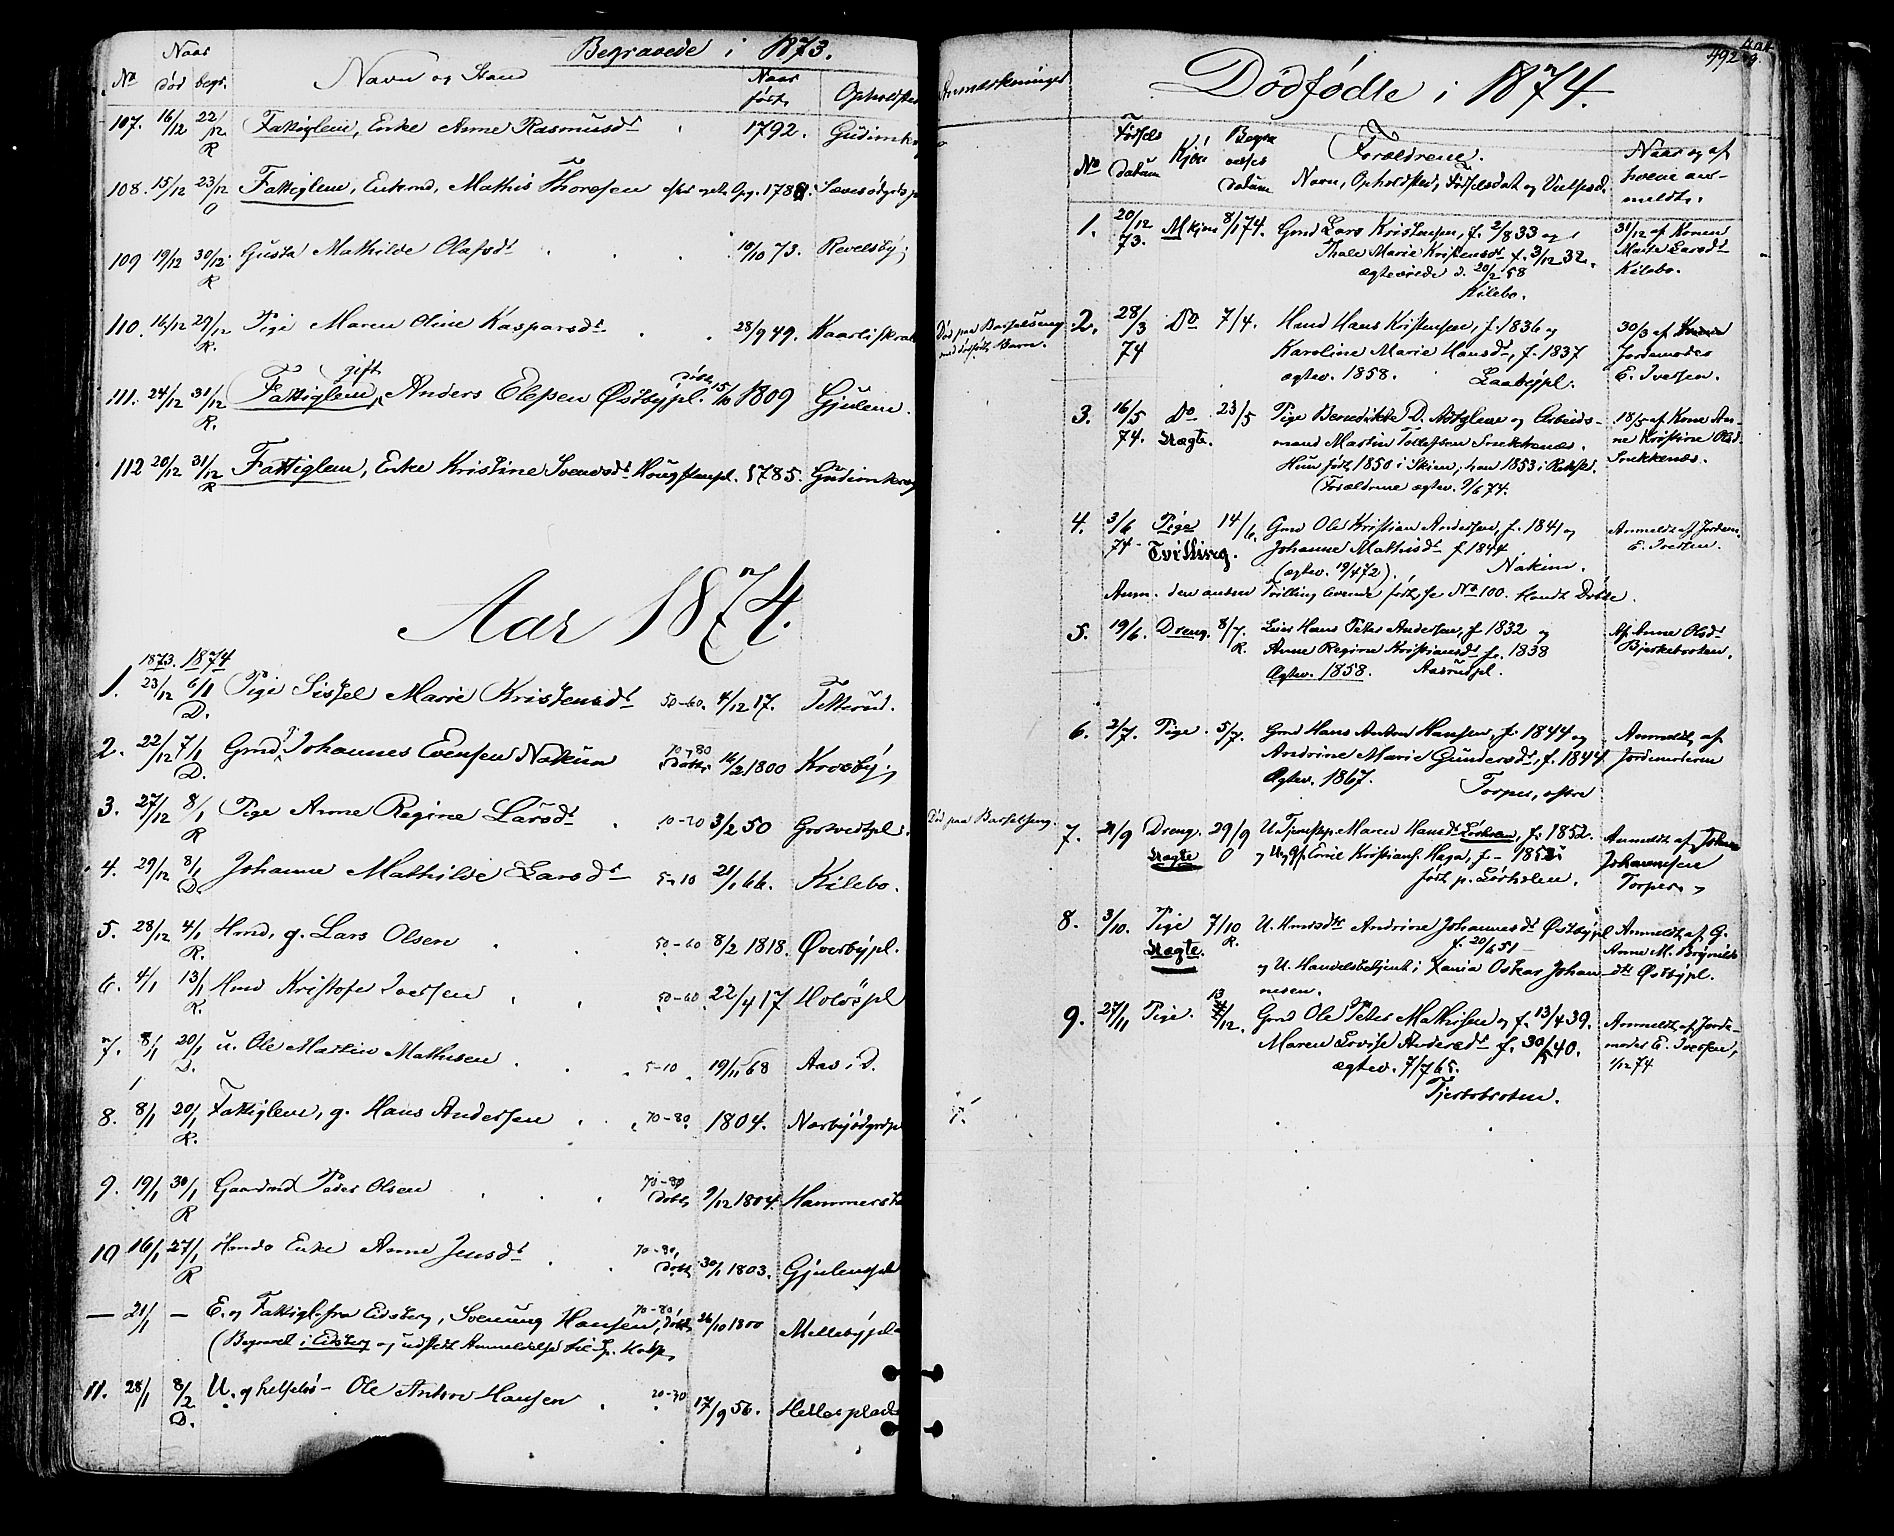 Begravede i 1873.
No Naar død begr. Navn og Stand Naar født Opholdsted Anmærkninger
107. 16/12 22/12 R Fattiglem, Enke Anne Rasmusdt 1792. Gudim
108. 15/12 23/12 O Fattiglem, Enkemd, Mathis Thoresen efter opg. 178
109 19/12 30/12 R Gusta Mathilde Olafsdt 10/10 73. Revelsby
110. 16/12 29/12 R. Pige Maren Oline Kaspersdt 28/9 49. Død paa Barselseng
med dødfødt Barn.
gift
111. 24/12 31/12 R. Fattiglem, Anders Olsen Østbypl. døbt 15/10 1809 Gjulem.
112 20/12 31/12 R Fattiglem, Enke Kristine Svendsdt 1785. Gudim
Aar 1874.
1873. 1874
1. 23/12 6/1 D. Pige Sissel Marie Kristensdt 50-60. 4/12 17. Tetterud.
2. 22/12 7/1 D. Gmd Johannes Evensen Nakim 70-80 døbt 16/2 1800 Krosby
3. 27/12 8/1 R Pige Anne Regine Larsdt 10-20 3/2 50 Død paa Barselseng.
4. 29/12 8/1 D. Johanne Mathilde Larsdt 5-10 21/1 66. Kilebo.
5. 28/12 4/1 R. Hmd, g. Lars Olsen 50-60 8/2 1818. Øverbypl.
6. 4/1 13/1 R. Hmd Kristofer Iversen 50-60 22/4 17
7. 8/1 20/1 D. u. Ole Martin Mathisen 5-10 19/11 68 Aas i D.
8. 8/1 20/1 R. Fattiglem, g. Hans Andersen 70-80 1804.
9. 19/1 30/1 R Gaardmd Peder Olsen 70-80 døbt 9/12 1804. Hammerst
10 16/1 27/1 R Hmds Enke Anne Jensdt 70-80, døbt 30/1 1803. Gjulemspl
— 21/1 — E. og Fattigl. fra Eidsberg, Svenung Hansen, 70-80 døbt 26/10 1800 Mellebypl
(Begravet i Eidsberg og udstedt Anmeldelse til
11. 28/1 8/2 D. U. og helseløs Ole Anton Hansen 20-30 17/9 56.
492
Dødfødte i 1874.
No Fødsels datum Kjøn Begravelses datum Forældrene.
Navn, Opholdsted, Fødselsdat og Vielsesd.
Naar og af hvem anmeldt.
1. 20/12 73. Mkjøn 8/1 74. Gmd Lars Kristensen, f. 2/8 33 og
Thale Marie Kristensdt f. 3/12 32.
ægteviede d. 20/2 58
Kilebo.
31/12 af Konen
Marte Larsdt
Kilebo.
2. 28/3 74 Do 7/4. Hmd Hans Kristensen, f. 1836 og
Karoline Marie Hansdt, f. 1837
ægtev. 1858. Laabypl.
30/3 af
Jordemoder
E. Iversen.
3. 16/5 74. Do uægte. 23/5 Pige Benedikte D. og Arbeids-
mand Martin Tollefsen Snekkenæs.
Hun født 1850 i Skien, han 1853 i
(Forældrene ægtev. 9/6 74.
18/5 af Kone An-
ne Kristine Olsd.
Snekkenæs.
4. 3/6 74 Pige Tvilling. 14/6. Gmd Ole Kristian Andersen, f. 1841 og
Johanne Mathisdt f. 1844
(ægtev. 19/4 72). Nakim.
Anmeldt af Jordem.
E. Iversen.
Anm. den anden Tvilling levende født, se No 100. blandt Døbte.
5. 19/6. Dreng. 8/7. R. Leier Hans Peter Andersen, f. 1832 og
Anne Regine Kristiansdt f. 1838
Ægtev. 1858. Aasrudpl.
Af Anne Olsdt
Bjerkebraaten.
6. 2/7. Pige. 5/7. Gmd Hans Anton Hansen, f. 1844 og
Andrine Marie Gundersdt, f. 1844
Ægtev. 1867. Torper, østre
Anmeldt af
Jordemoderen
7. 21/9 Dreng. uægte 29/9 O U. Tjenstp. Maren Hansdt, f. 1852.
og Emil Kristians. Haga, f.
født p.
Anmeldt af Johan
Johannesen
Torper.
8. 3/10. Pige uægte. 7/10 R. U. Hmdsdtr Andrine Johannesdt Østbypl
f. 20/6 51
og U. Handelsbetjent i Xania Oskar Johan-
nesen.
Anmeldt af G.
Anne M. Brynilds-
dt Østbypl.
9. 27/11 Pige. 13/12. Gmd Ole Peter Mathisen og f. 13/4 39.
Maren Lovise Andersdt f. 30/5 40.
ægtev. 7/7 65.
Anmeldt af Jorde-
moder E. Iversen,
1/12 74